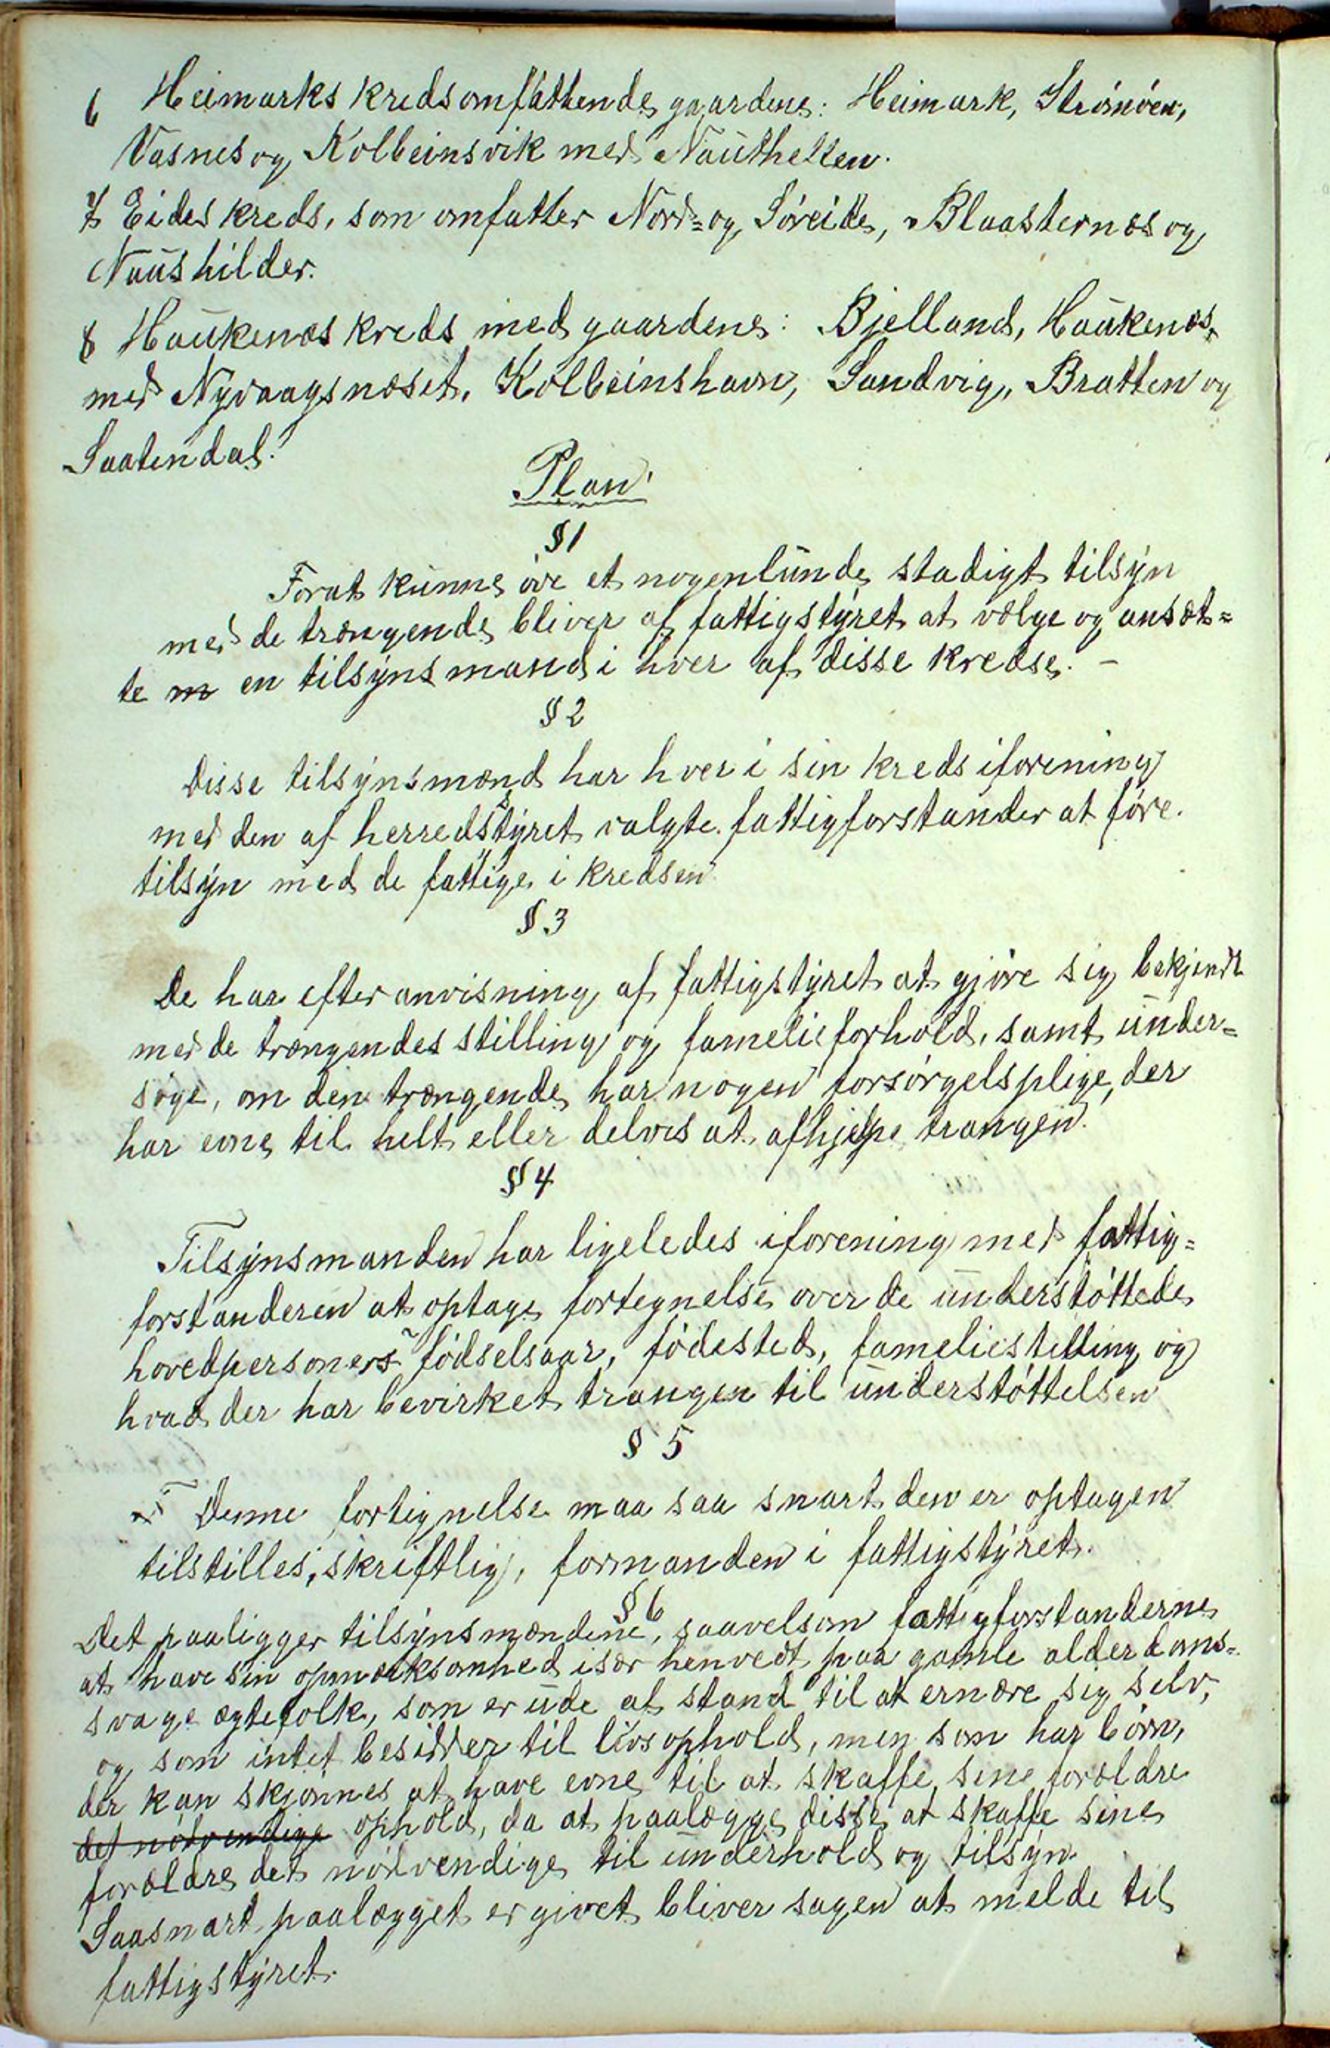 6 Heimarks kreds omfattende gaardene: Heimark, Strømøen,
Vasnes og Kolbeinsvik med Nauthellen.
7 Eides kreds, som omfatter Nord= og Søreide, Blaasternæs og
Naushilder.
8 Haukenæs kreds med gaardene: Bjelland, Haukenæs
med Nyvaagsnæset, Kolbeinshavn, Sandvig, Bratten og
Saatendal.
Plan.
§1
Forat kunne øve et nogenlunde stadigt tilsyn
med de trængende bliver af fattigstyret at vælge og ansæt=
te m en tilsynsmand i hver af disse kredse. –
§2
Disse tilsynsmænd har hver i sin kreds iforening
med den af herredsstyret valgte fattigforstander at føre
tilsyn med de fattige i kredsen
§3
De har efter anvisning af fattigstyret at gjøre sig bekjendt
med de trængendes stilling og famelieforhold, samt under=
søge, om den trængende har nogen forsørgelsplige, der
har evne til helt eller delvis at afhjelpe trangen.
§4
Tilsynsmanden har ligeledes iforening med fattig=
forstanderen at optage fortegnelse over de understøttede
hovedpersoners fødselsaar, fødested,ameliestilling og
hvad der har bevirket trangen til understøttelsen
§5
Denne fortegnelse maa saa snart den er optagen
tilstilles, skriftlig, formanden i fattigstyret.
§6
Det paaligger tilsynsmændene, saavelsom fattigforstanderne
at have sin opmærksomhed især henvedt paa gamle alderdoms=
svage ægtefolk, som er ude af stand til at ernære sig selv,
og som intet besidder til livsophold, men som har børn,
der kan skjønnes at have evne til at skaffe sine forældre
det nødvendige ophold, da at paalægge disse at skaffe sine
forældre det nødvendige til underhold og tilsyn.
Saasnart paalægget er givet bliver sagen at melde til
fattigstyret.